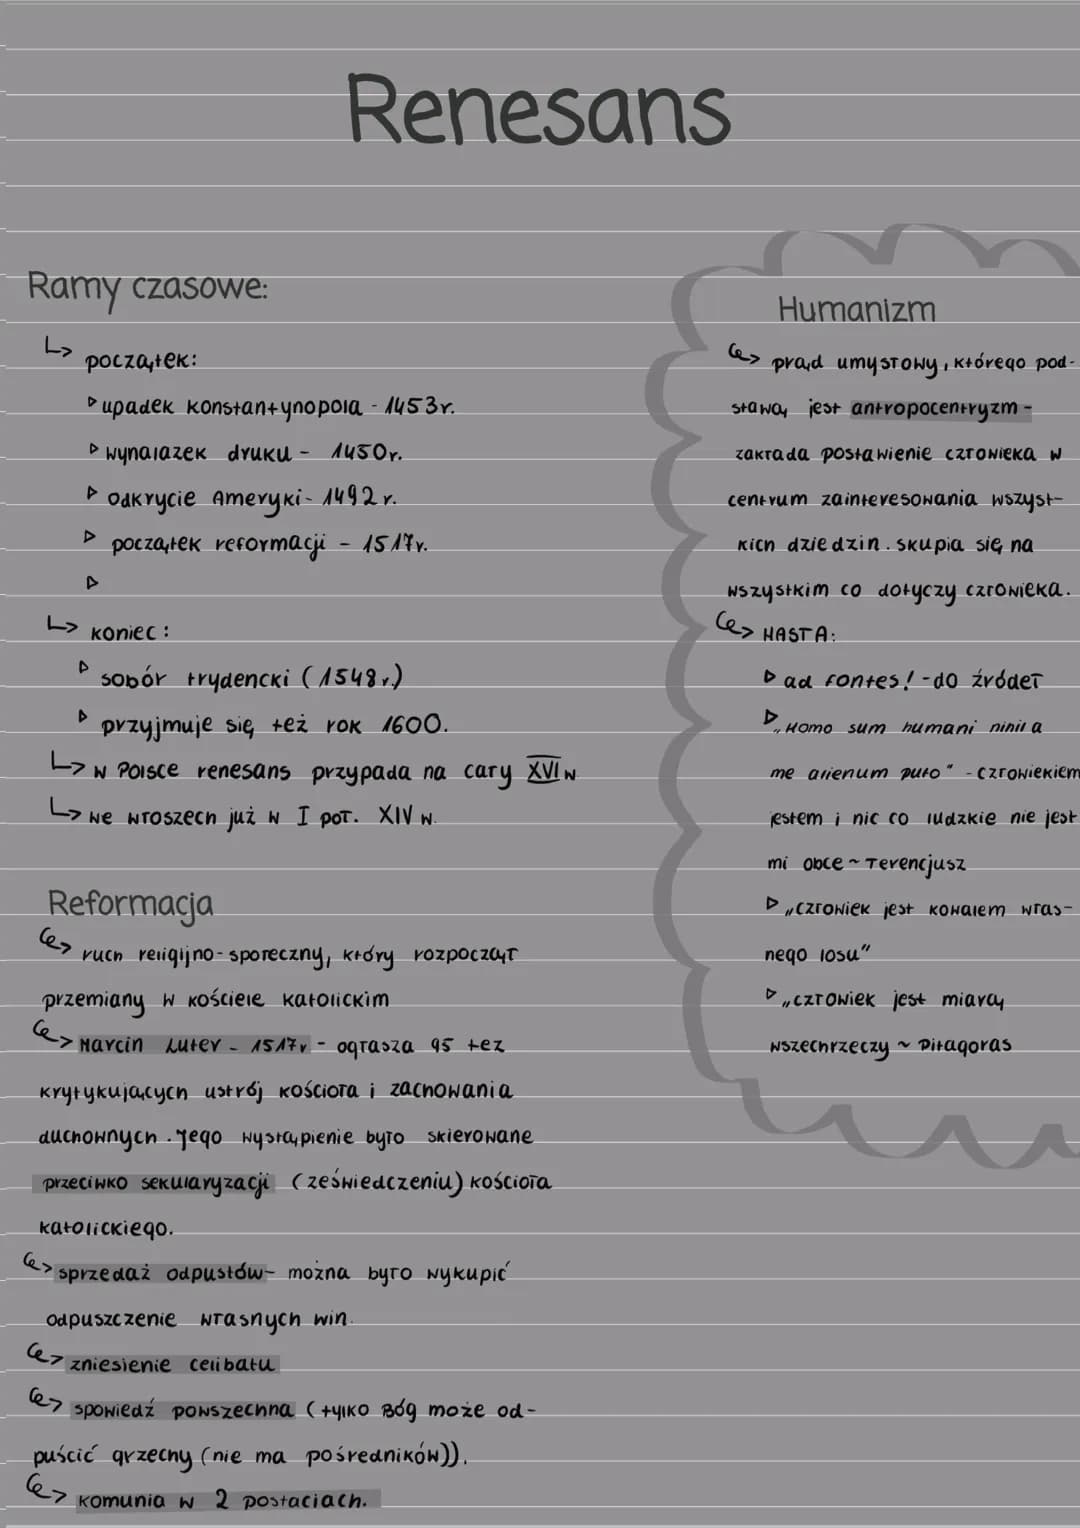 Renesans
Ramy czasowe:
↳ początek:
▹ upadek Konstantynopola - 1453r.
▹ wynalazek druku - 1450r.
▹ odkrycie Ameryki - 1492 r.
▹ początek reformacji - 1517r.
▹
↳ koniec:
▹ sobór trydencki (1548r.)
▹ przyjmuje się też rok 1600.
↳ w Polsce renesans przypada na cały XVI w
↳ we włoszech już w I poł. XIV w.
Reformacja
↪ ruch religijno-społeczny, który rozpoczął
przemiany w kościele katolickim
↪ Marcin Luter - 1517r - ogłasza 95 tez
krytykujących ustrój kościoła i zachowania
duchownych. Jego wystąpienie było skierowane
przeciwko sekularyzacji (zeświedczeniu) kościoła
katolickiego.
↪ sprzedaż odpustów - można było wykupić
odpuszczenie własnych win.
↪ zniesienie celibatu
↪ spowiedź powszechna (tylko Bóg może od-
puścić grzechy (nie ma pośredników)).
↪ komunia w 2 postaciach.
Humanizm
↪ prąd umysłowy, którego pod-
stawą jest antropocentryzm -
zakłada postawienie człowieka w
centrum zainteresowania wszyst-
kich dziedzin. skupia się na
wszystkim co dotyczy człowieka.
↪ HASŁA:
▹ ad fontes! - do źródeł
▹ „Homo sum humani nihil a
me alienum puto" - człowiekiem
jestem i nic co ludzkie nie jest
mi obce ~ Terencjusz
▹ „człowiek jest kowalem włas-
nego losu"
▹ „człowiek jest miarą
wszechrzeczy ~ Pitagoras